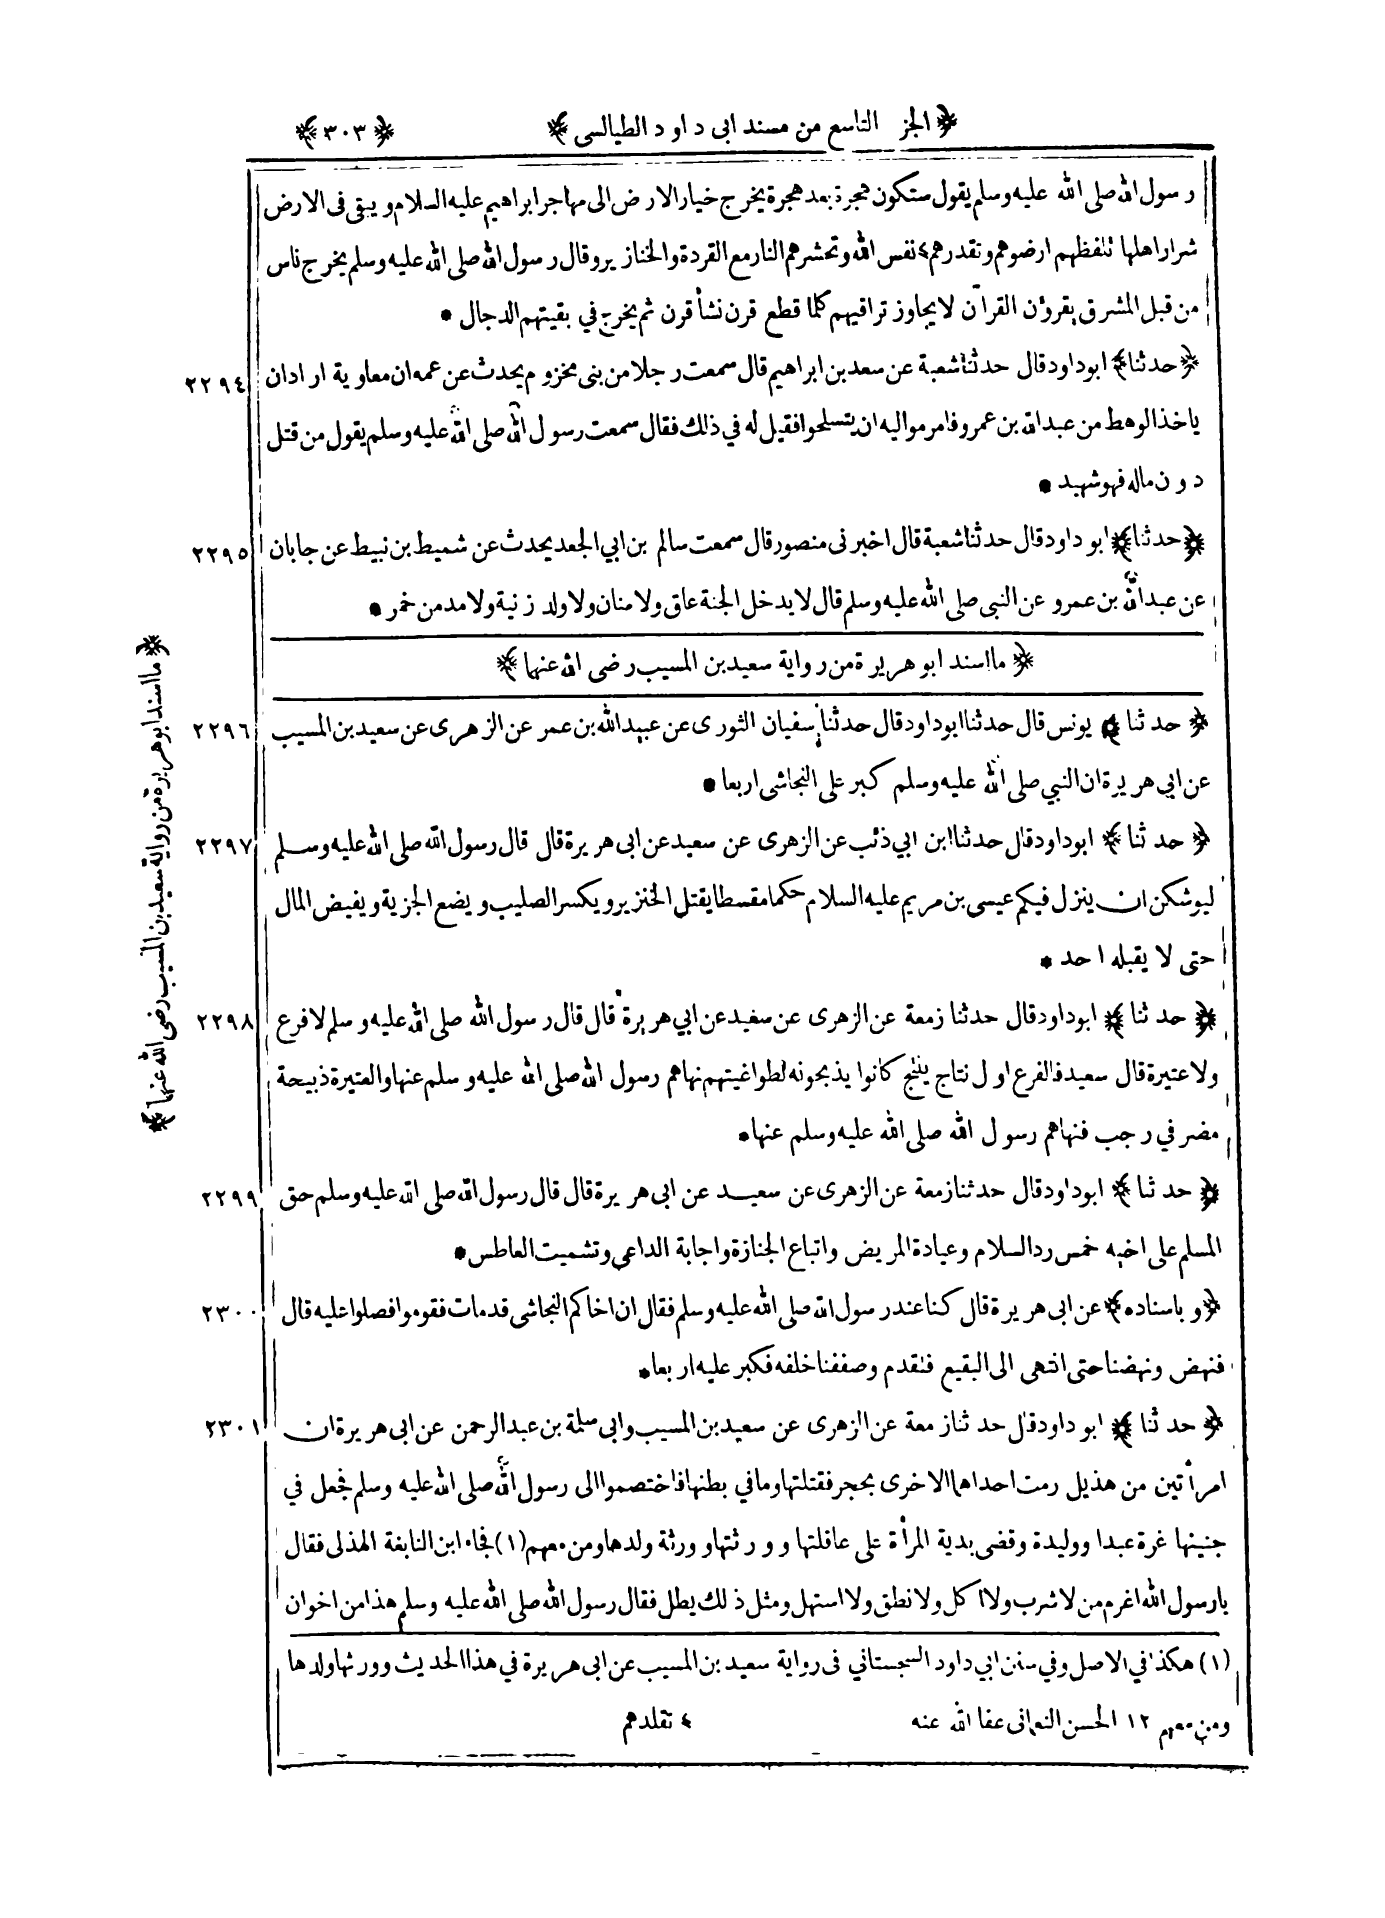 ﴿الجزء التاسع من مسند ابى داود الطيالسى﴾ ﴿٣٠٣﴾
رسول الله صلى الله عليه وسلم يقول ستكون هجرة بعد هجرة يخرج خيار الارض الى مهاجر ابراهيم عليه السلام ويبقى فى الارض
شرار اهلها تلفظهم ارضوهم وتقذرهم٤ نفس الله وتحشرهم النار مع القردة والخنازير وقال رسول الله صلى الله عليه وسلم يخرج ناس
من قبل المشرق يقرؤن القرآن لا يجاوز تراقيهم كلما قطع قرن نشأ قرن ثم يخرج في بقيتهم الدجال *
٢٢٩٤ ﴿حدثنا﴾ ابو داود قال حدثنا شعبة عن سعد بن ابراهيم قال سمعت رجلا من بنى مخزوم يحدث عن عمه ان معاوية اراد ان
ياخذ الوهط من عبد الله بن عمرو فامر مواليه ان يتسلحوا فقيل له في ذلك فقال سمعت رسول الله صلى الله عليه وسلم يقول من قتل
دون ماله فهو شهيد *
٢٢٩٥ ﴿حدثنا﴾ ابو داود قال حدثنا شعبة قال اخبرنى منصور قال سمعت سالم بن ابي الجعد يحدث عن شميط بن نبيط عن جابان
عن عبد الله بن عمرو عن النبى صلى الله عليه وسلم قال لا يدخل الجنة عاق ولا منان ولا ولد زنية ولا مدمن خمر *
﴿ما اسند ابو هريرة من رواية سعيد بن المسيب رضى الله عنهما﴾
٢٢٩٦ ﴿حدثنا﴾ يونس قال حدثنا ابو داود قال حدثنا سفيان الثورى عن عبيد الله بن عمر عن الزهرى عن سعيد بن المسيب
عن ابي هريرة ان النبي صلى الله عليه وسلم كبر على النجاشى اربعا *
٢٢٩٧ ﴿حدثنا﴾ ابو داود قال حدثنا ابن ابي ذئب عن الزهرى عن سعيد عن ابى هريرة قال قال رسول الله صلى الله عليه وسلم
ليوشكن ان ينزل فيكم عيسى بن مريم عليه السلام حكما مقسطا يقتل الخنزير ويكسر الصليب ويضع الجزية ويفيض المال
حتى لا يقبله احد *
٢٢٩٨ ﴿حدثنا﴾ ابو داود قال حدثنا زمعة عن الزهرى عن سعيد عن ابي هريرة قال قال رسول الله صلى الله عليه وسلم لا فرع
ولا عتيرة قال سعيد فالفرع اول نتاج ينتج كانوا يذبحونه لطواغيتهم نهاهم رسول الله صلى الله عليه وسلم عنها والعتيرة ذبيحة
مضر في رجب فنهاهم رسول الله صلى الله عليه وسلم عنها *
٢٢٩٩ ﴿حدثنا﴾ ابو داود قال حدثنا زمعة عن الزهرى عن سعيد عن ابى هريرة قال قال رسول الله صلى الله عليه وسلم حق
المسلم على اخيه خمس رد السلام وعيادة المريض واتباع الجنازة واجابة الداعى وتشميت العاطس *
٢٣٠٠ ﴿وباسناده﴾ عن ابى هريرة قال كنا عند رسول الله صلى الله عليه وسلم فقال ان اخاكم النجاشى قد مات فقوموا فصلوا عليه قال
فنهض ونهضنا حتى انتهى الى البقيع فتقدم وصففنا خلفه فكبر عليه اربعا *
٢٣٠١ ﴿حدثنا﴾ ابو داود قال حدثنا زمعة عن الزهرى عن سعيد بن المسيب وابى سلمة بن عبد الرحمن عن ابى هريرة ان
امرأتين من هذيل رمت احداهما الاخرى بحجر فقتلتها وما في بطنها فاختصموا الى رسول الله صلى الله عليه وسلم فجعل في
جنينها غرة عبدا ووليدة وقضى بدية المرأة على عاقلتها وورثتها وورثة ولدها ومن معهم (١) فجاء ابن النابغة الهذلى فقال
يارسول الله اغرم من لا شرب ولا اكل ولا نطق ولا استهل ومثل ذلك يطل فقال رسول الله صلى الله عليه وسلم هذا من اخوان
(١) هكذا في الاصل وفي سنن ابي داود السجستاني فى رواية سعيد بن المسيب عن ابى هريرة في هذا الحديث وورثها ولدها
ومن معهم ١٢ الحسن النعمانى عفا الله عنه ٤ تقلدهم
﴿ما اسند ابو هريرة من رواية سعيد بن المسيب رضى الله عنهما﴾